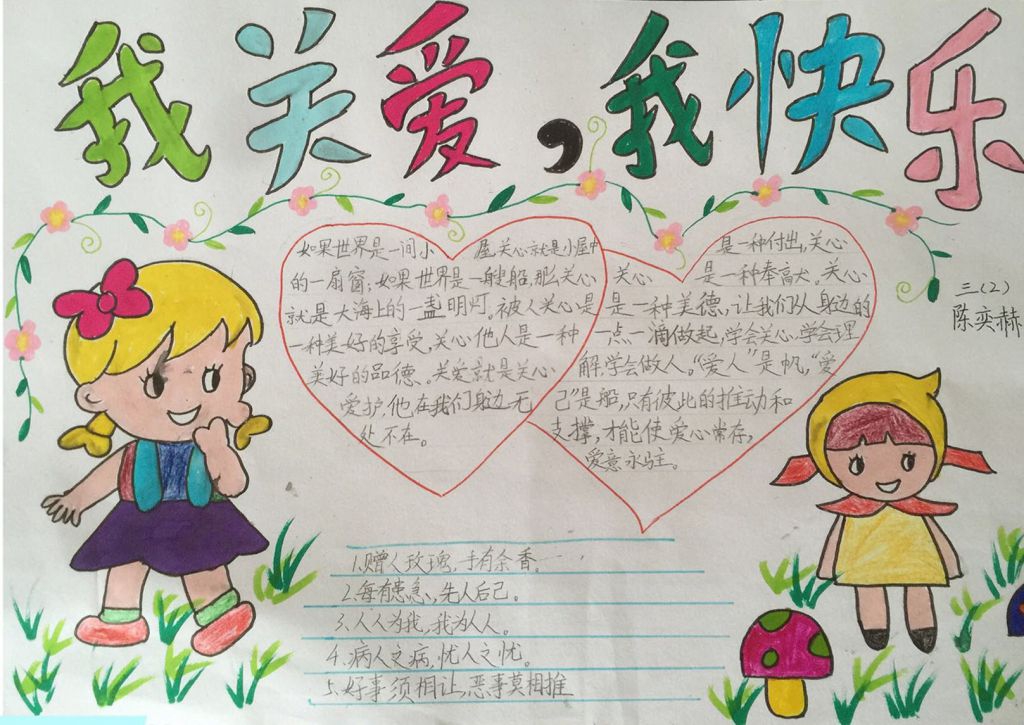 我关爱,我快乐
三(2)
陈奕赫
如果世界是一间小屋,关心就是小屋中
的一扇窗;如果世界是一艘船,那么关心
就是大海上的一盏明灯。被人关心是
一种美好的享受,关心他人是一种
美好的品德。关爱就是关心
爱护,他在我们身边无
处不在。
是一种付出,关心
关心是一种奉献。关心
是一种美德,让我们从身边的
一点一滴做起,学会关心,学会理
解,学会做人。“爱人”是帆,“爱
己”是船,只有彼此的推动和
支撑,才能使爱心常存,
爱意永驻。
1.赠人玫瑰,手有余香。
2.每有患急,先人后己。
3.人人为我,我为人人。
4.病人之病,忧人之忧。
5.好事须相让,恶事莫相推